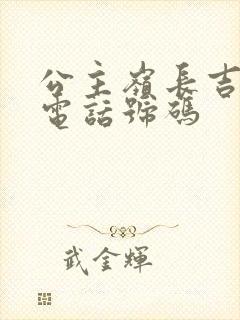 公主嶺長吉
電話號碼
武金輝